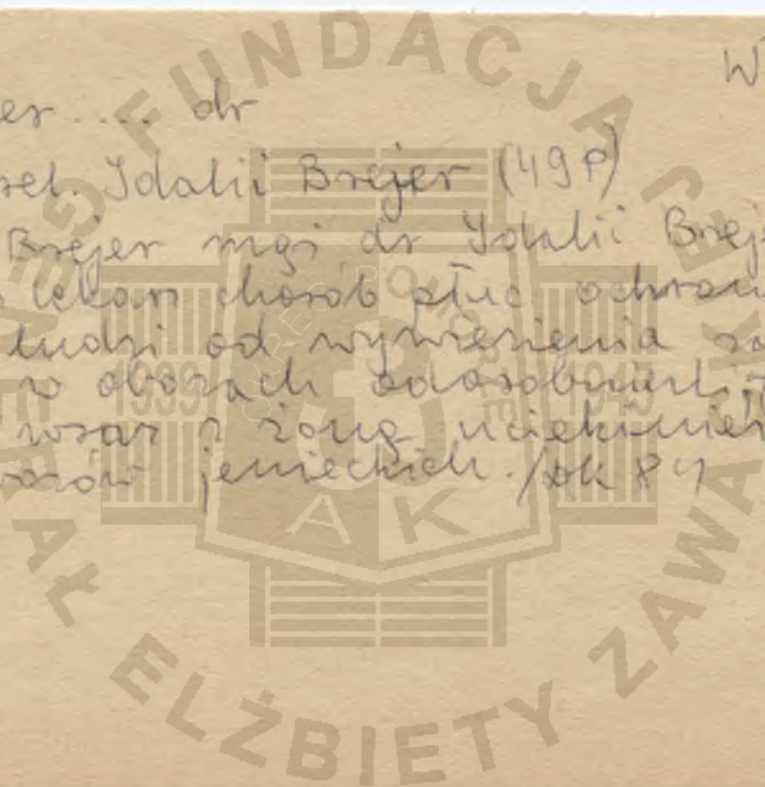 W
er .... dr
rel. Idalii Brejer (49P)
Brejer mąż dr Idalii Breje
lekarz chorób płuc ochran
ludzi od wywiezienia
w obozach
wraz z żoną uciekinier
jenieckich. /
FUNDACJA
ELŻBIETY ZAWA
1939
1945
AK